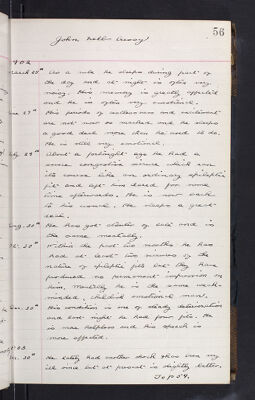 56
John
1902
March 20th As a rule he sleeps during part of
the day and at night is often very
noisy. His memory is greatly affected
and he is often very emotional.
27th His periods of and excitement
are not now so marked and he sleeps
a good deal more than he used to do.
He is still very emotional.
July 29th About a fortnight ago he had a
severe congestive seizure which ran
its course like an ordinary epileptic
fit and left him dazed for some
time afterwards. He is now much
in his usual. He sleeps a great
deal.
Aug. 30th He has got stouter of late and is
the same mentally.
30th Within the past two months he has
had at least two seizures of the
nature of epileptic fits but they have
produced no permanent impression on
him. Mentally he is the same weak-
minded, childish emotional man.
30th His condition is one of steady deterioration
and last night he had four fits. He
is now helpless and his speech is
more affected.
30th He lately had another shock was very
ill since but at present is slightly better.
To p 59.